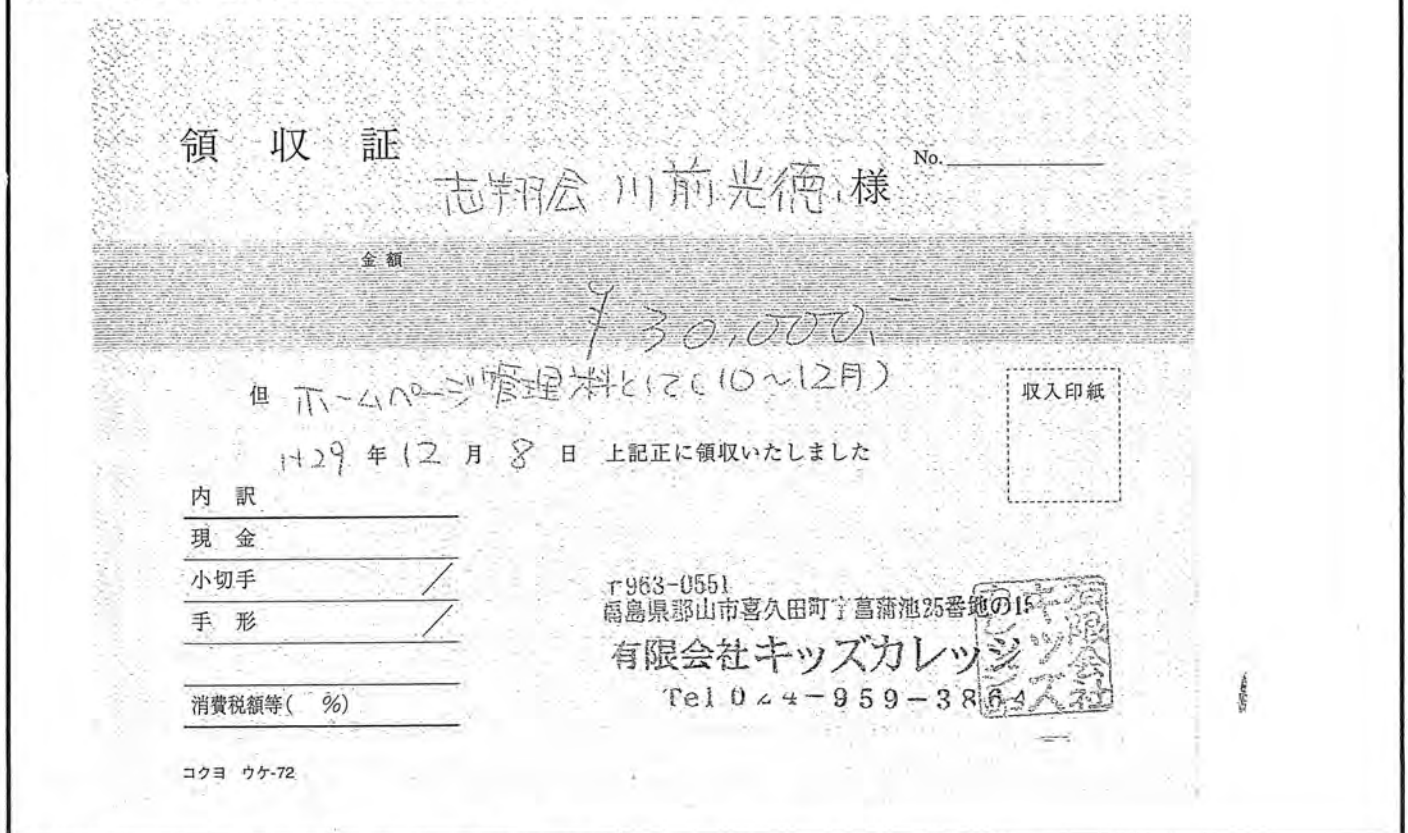 領収証
No.
志翔会 川前光徳 様
金額
¥30,000.-
但 ホームページ管理料として(10~12月)
収入印紙
H29年12月8日 上記正に領収いたしました
内訳
現金
小切手 /
手形 /
消費税額等( %)
〒963-0551
福島県郡山市喜久田町字菖蒲池25番地の15
有限会社キッズカレッジ
Tel 024-959-3864
有限会社キッズカレッジ
コクヨ ウケ-72